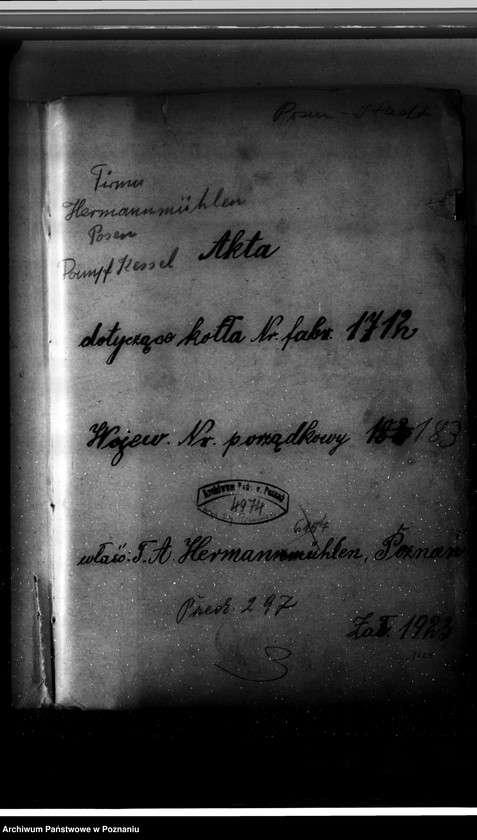 Posen - Stadt
Firma
Hermannmühlen
Posen
Dampf Kessel
Akta
dotyczące kotła Nr. fabr. 1712
Wojew. Nr. porządkowy 183
Archiwum Państ. w Poznań
4974
właśc: T. A Hermannmühlen, Poznań
297
Zał. 1923
3
Archiwum Państwowe w Poznaniu